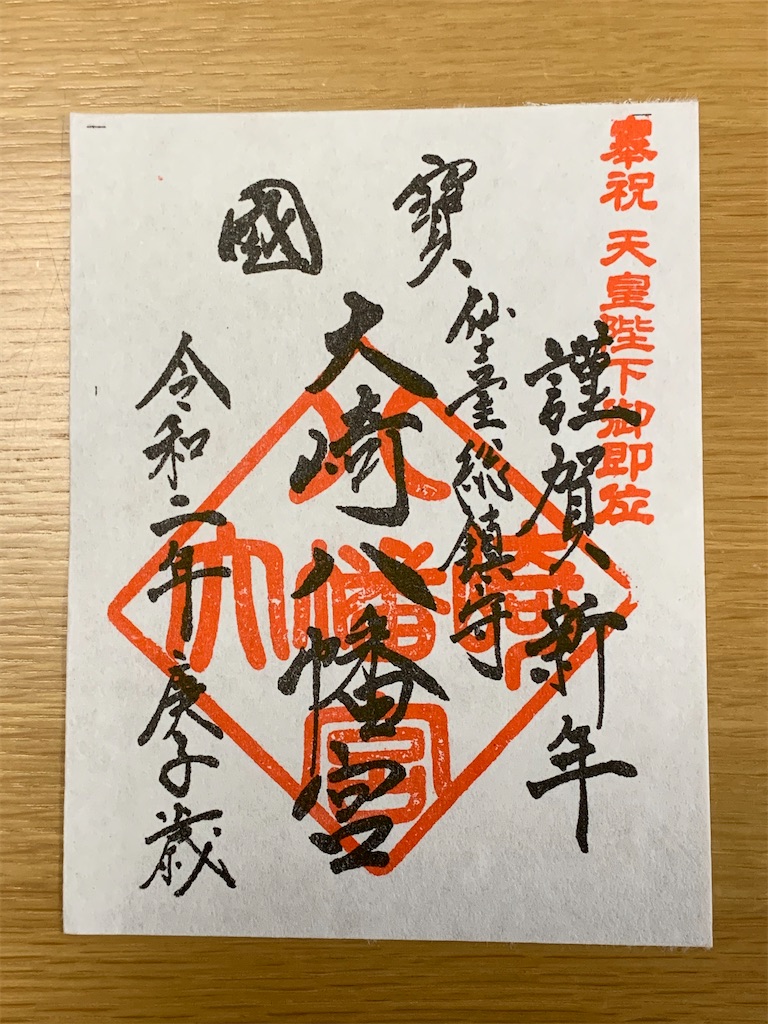 奉祝 天皇陛下御即位
謹賀新年
寶
仙臺総鎮守
大崎八幡宮
國
令和二年庚子歳
大崎八幡宮